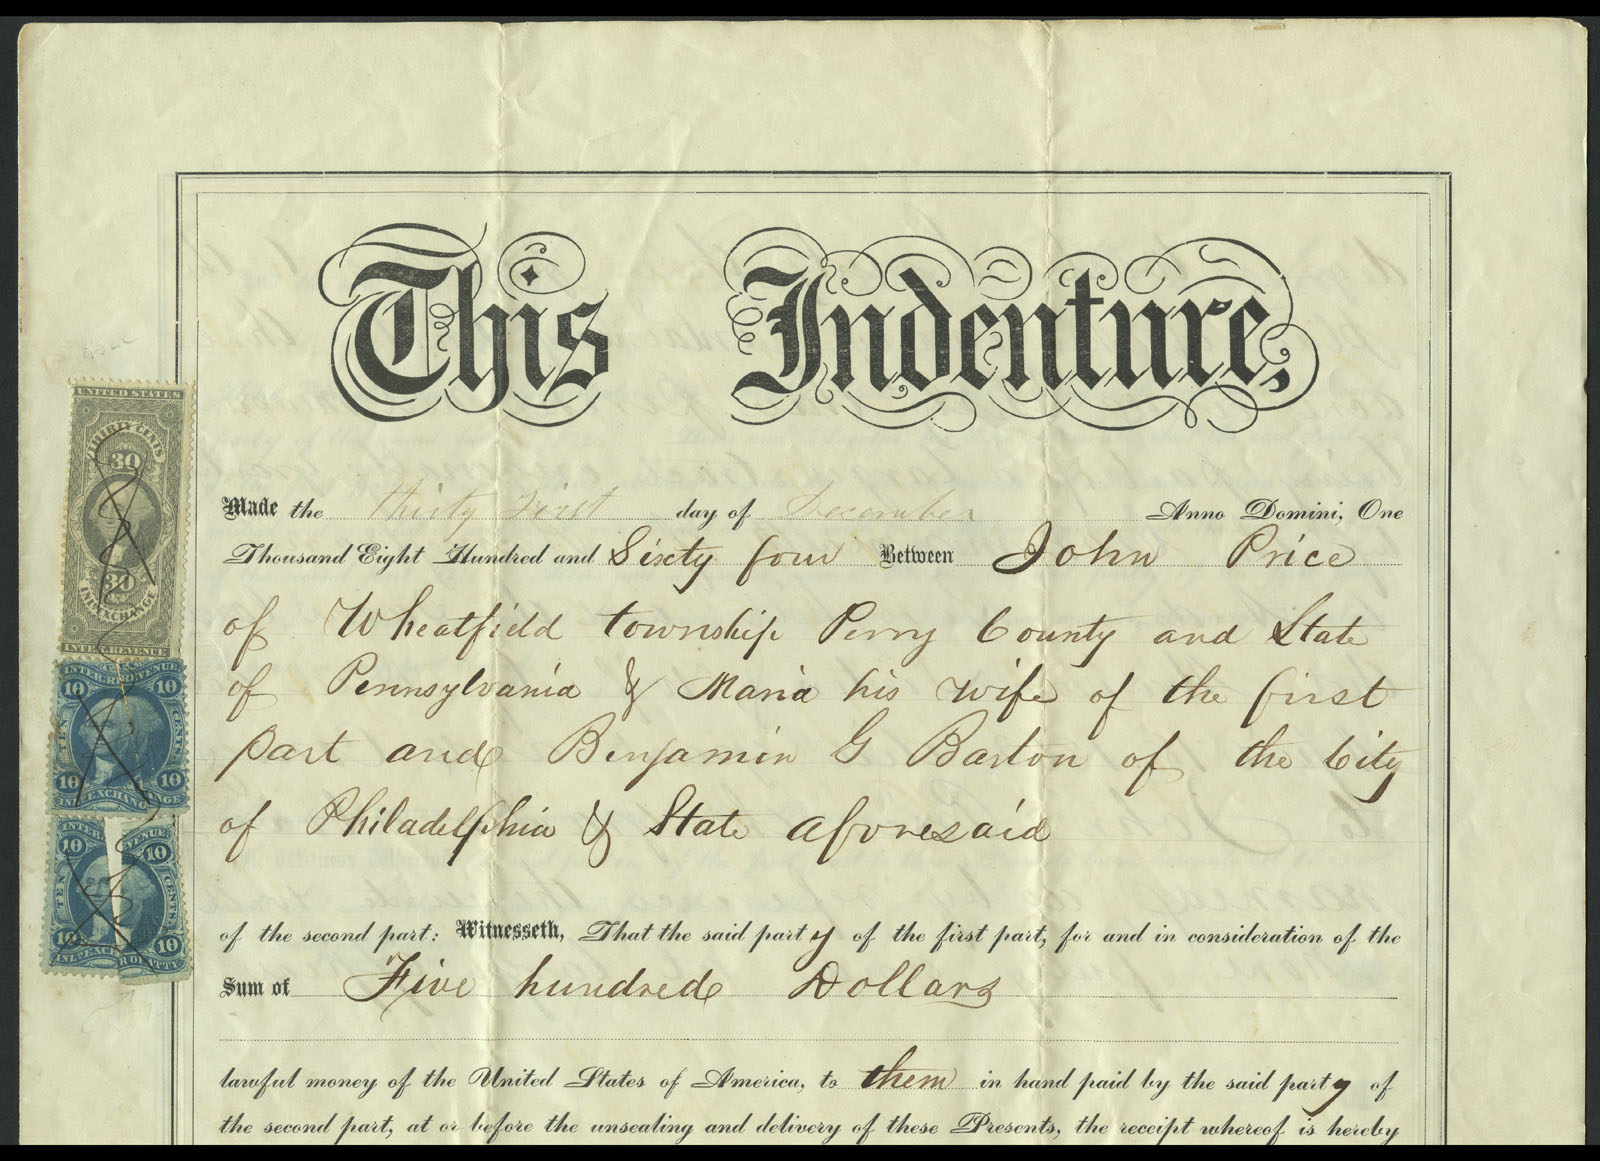 This Indenture,
Made the thirty first day of December Anno Domini, One
Thousand Eight Hundred and Sixty four Between John Price
of Wheatfield township Perry County and State
of Pennsylvania & Maria his wife of the first
part and Benjamin G Barton of the City
of Philadelphia & State aforesaid
of the second part: Witnesseth, That the said party of the first part, for and in consideration of the
Sum of Five hundred Dollars
lawful money of the United States of America, to them in hand paid by the said party of
the second part, at or before the unsealing and delivery of these Presents, the receipt whereof is hereby
UNITED STATES
THIRTY CENTS
30
30
INL. EXCHANGE
INTER. REVENUE
U.S.
INTER. REVENUE
10 10
TEN CENTS
10 10
INL. EXCHANGE
INTER. REVENUE
10 10
TEN CENTS.
10 10